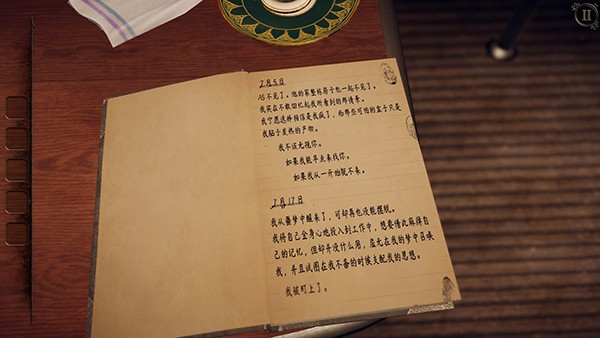 7月5日
AS不见了。他的家整栋房子也一起不见了。
我实在不敢回忆起我所看到的那情景。
我宁愿这样相信是我疯了，而那些可怕的盒子只是
我脑子发热的产物。
我不该无视你。
如果我能早点来找你。
如果我从一开始就不来。
7月17日
我从噩梦中醒来了，可却再也没能摆脱。
我将自己全身心地投入到工作中，想要借此麻痹自
己的记忆，但却并没什么用，虚无在我的梦中召唤
我，并且试图在我不备的时候支配我的思想。
我被盯上了。
II